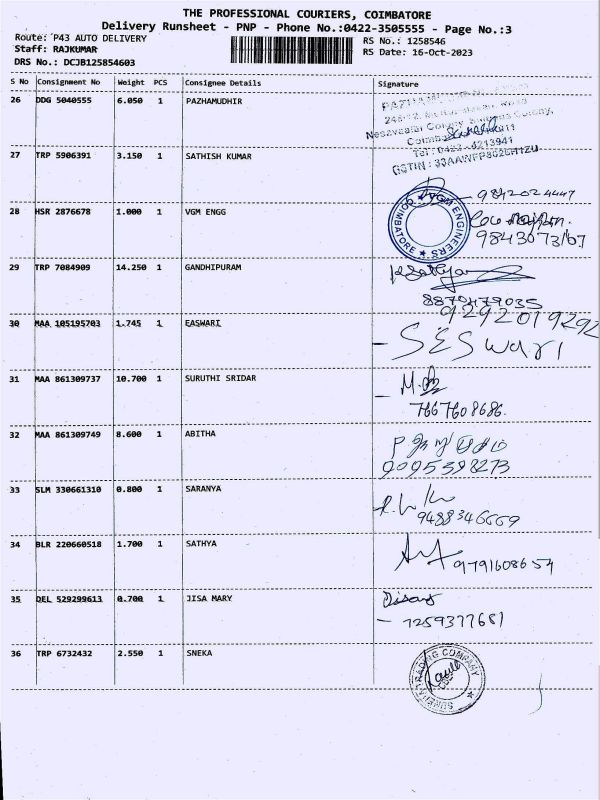 THE PROFESSIONAL COURIERS, COIMBATORE
Delivery Runsheet - PNP - Phone No.:0422-3505555 - Page No.:3
Route: P43 AUTO DELIVERY RS No.: 1258546
Staff: RAJKUMAR RS Date: 16-Oct-2023
DRS No.: DCJB125854603
S No Consignment No Weight PCS Consignee Details Signature
26 DDG 5040555 6.050 1 PAZHAMUDHIR
27 TRP 5906391 3.150 1 SATHISH KUMAR
9842024447
28 HSR 2876678 1.000 1 VGM ENGG
VGM ENGINEERS COIMBATORE
9843073167
29 TRP 7084909 14.250 1 GANDHIPURAM
R Sathya
8870479035
30 MAA 105195703 1.745 1 EASWARI
9292019292
SESwari
31 MAA 861309737 10.700 1 SURUTHI SRIDAR
7667608686.
32 MAA 861309749 8.600 1 ABITHA
9095398273
33 SLM 330661310 0.800 1 SARANYA
9488346669
34 BLR 220660518 1.700 1 SATHYA
9791608654
35 DEL 529299613 0.700 1 JISA MARY
7259377681
36 TRP 6732432 2.550 1 SNEKA
TRADING COMPANY
CBE